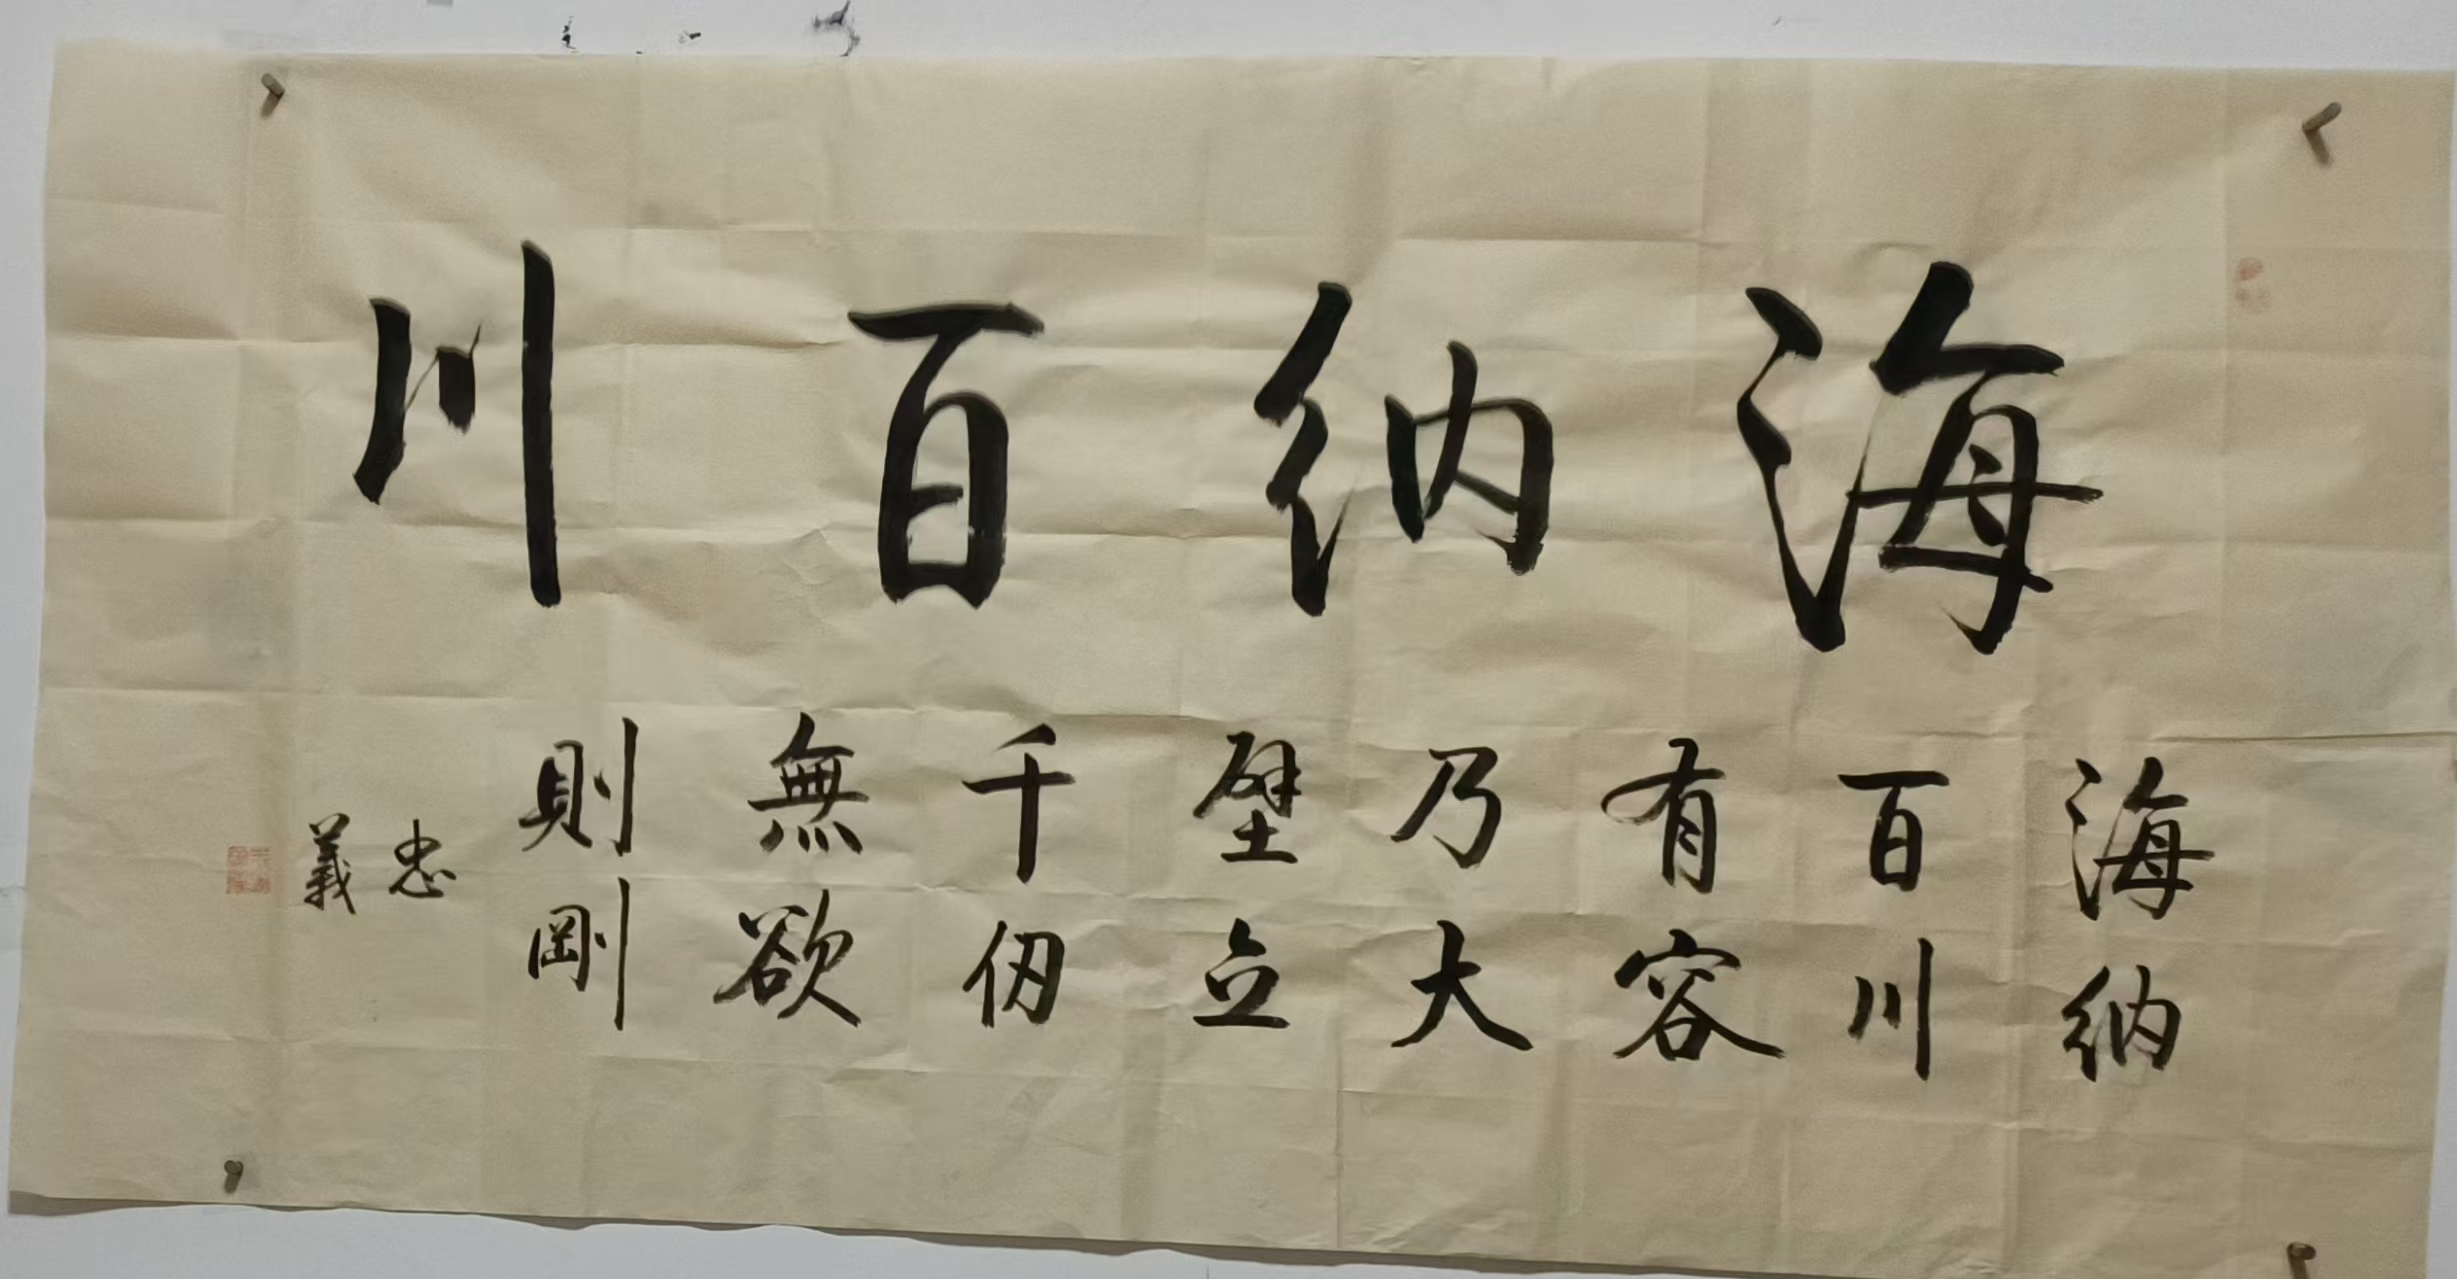 海納百川
海納
百川
有容
乃大
壁立
千仞
無欲
則剛
忠
義